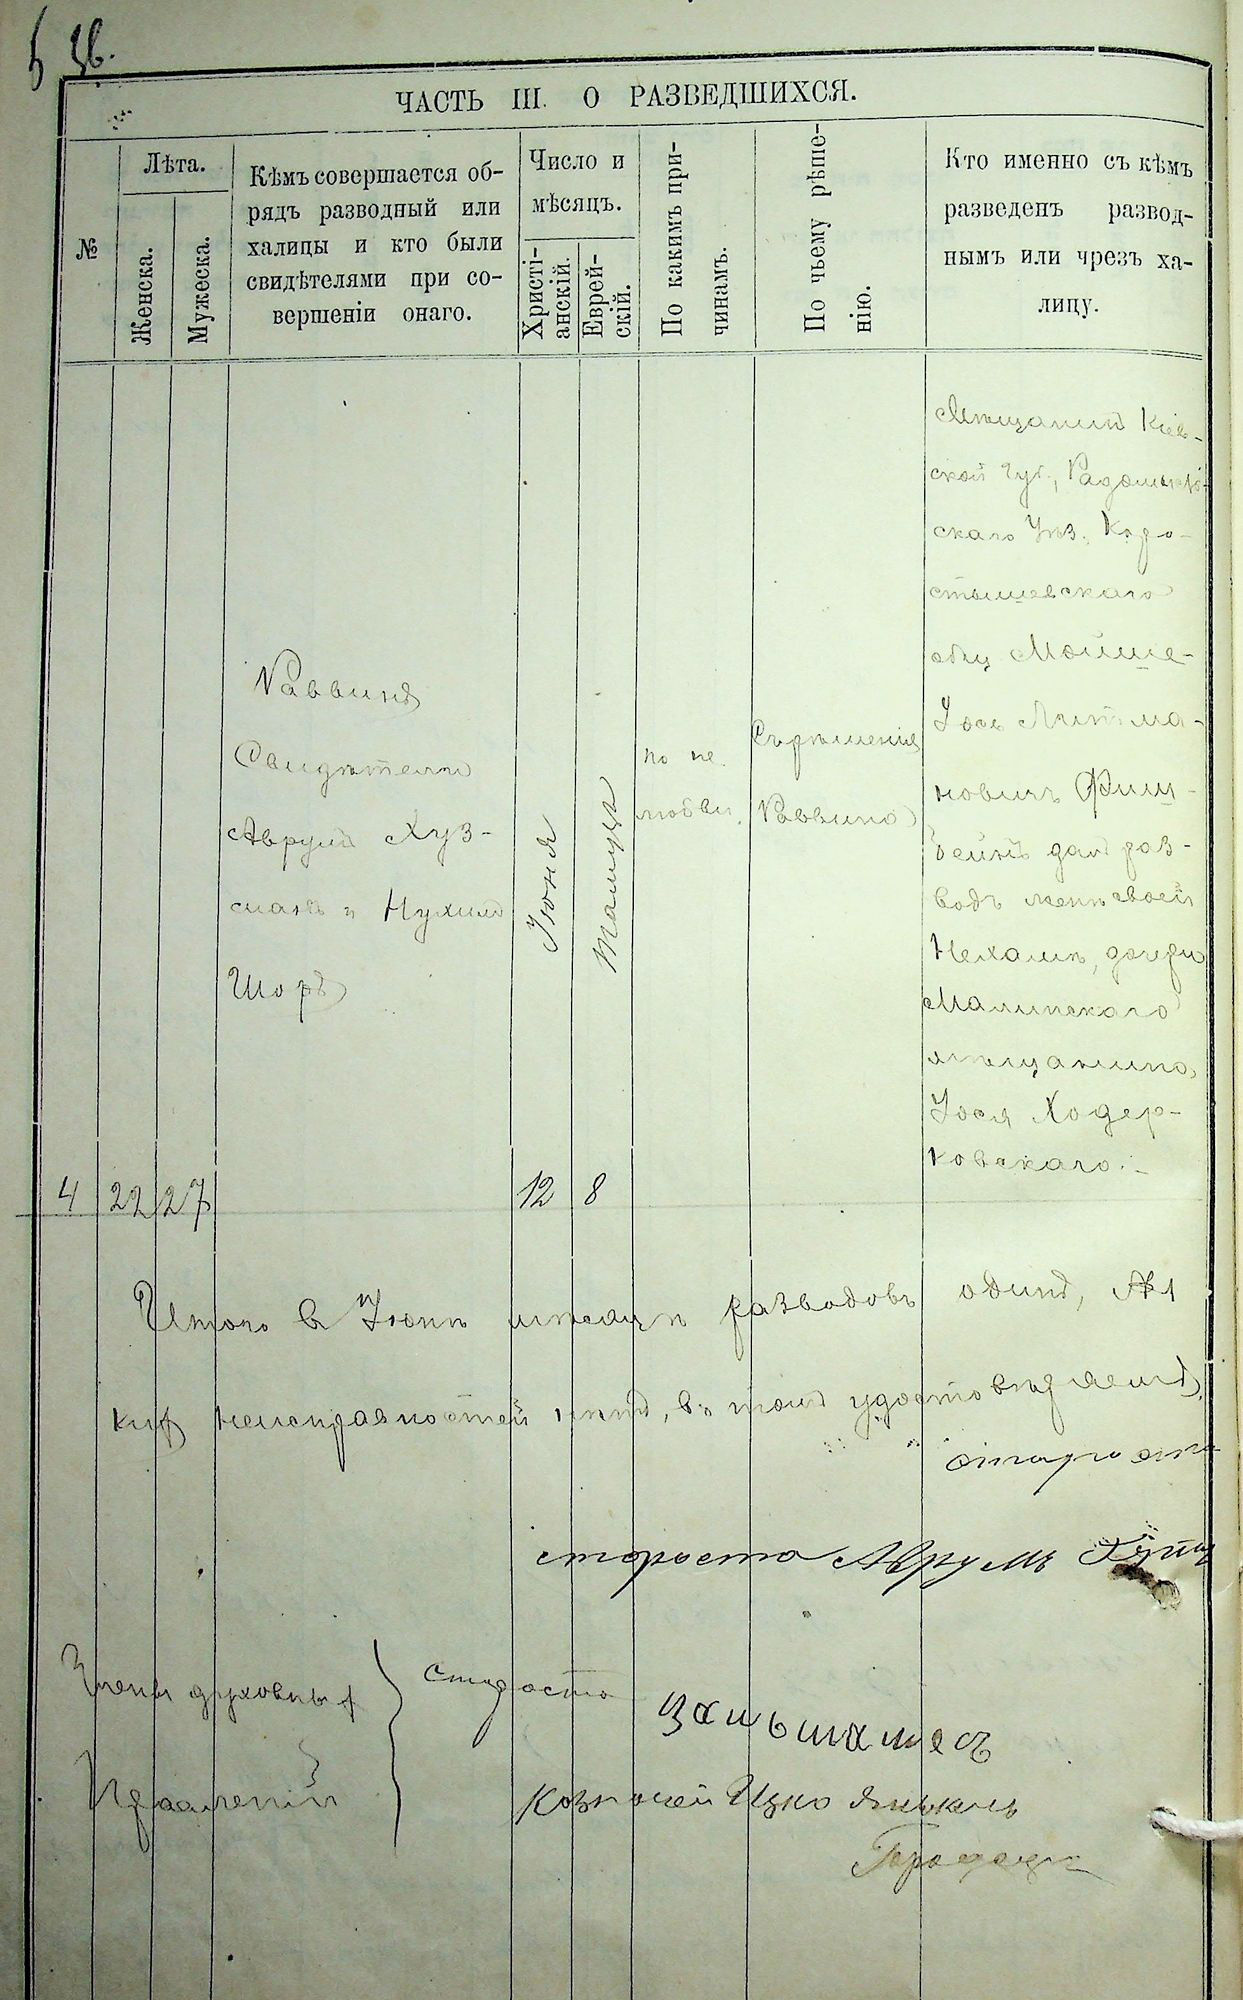 ЧАСТЬ III. О РАЗВЕДШИХСЯ.
№
Лѣта.
Женска.
Мужеска.
Кѣмъ совершается об-
рядъ разводный или
халицы и кто были
свидѣтелями при со-
вершеніи онаго.
Число и
мѣсяцъ.
Христі-
анскій.
Еврей-
скій.
По какимъ при-
чинамъ.
По чьему рѣше-
нію.
Кто именно съ кѣмъ
разведенъ развод-
нымъ или чрезъ ха-
лицу.
4
22
27
Раввинъ
Свидѣтели
Аврумъ Хуз-
манъ и Нухимъ
Шоръ
Іюня
12
Тамуза
8
по не
любви
Съ рѣшенія
Раввина
Мѣщанинъ Кіев-
ской Губ., Радомысль-
скаго Уѣз. Коро-
стышевскаго
общ Мойше-
Іось Литма-
новичъ Фиш-
бейнъ далъ раз-
водъ женѣ своей
Нехамѣ, дочери
Малинскаго
мѣщанина
Іося Ходор-
ковскаго.
Итого въ Іюнѣ мѣсяцѣ разводовъ одинъ, №
неисправностей нѣтъ, въ томъ удостовѣряемъ
староста
староста Аврумъ
Члены духовныя
Правленій
староста
Казначей Ицко Янькель